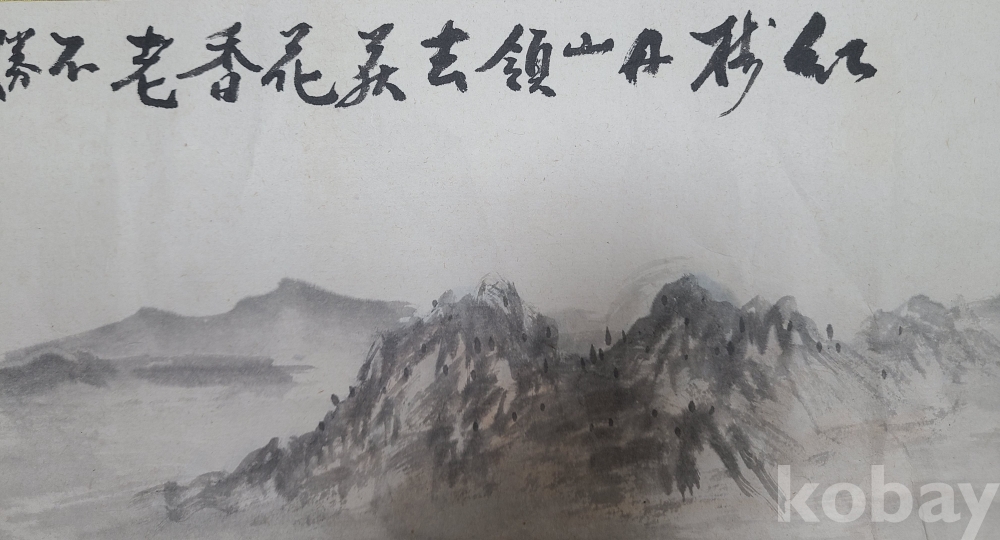 紅樹丹山領去花香老不勝
kobay